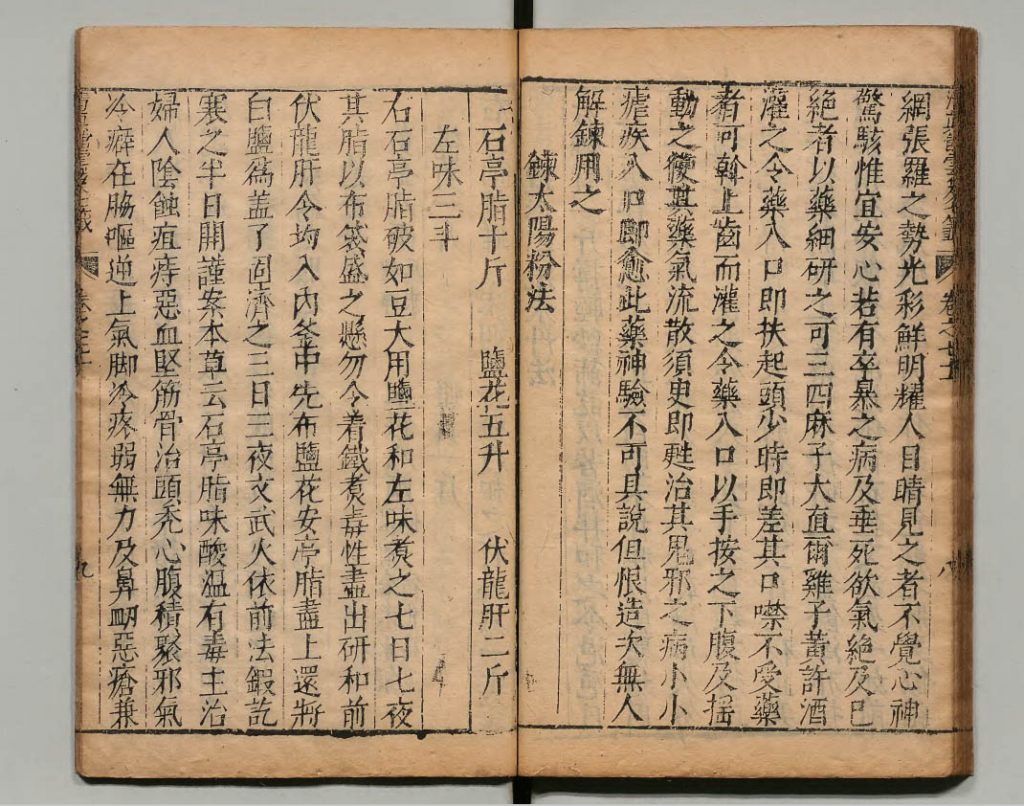 網張羅之勢光彩鮮明耀人目睛見之者不覺心神
驚駭惟宜安心若有卒暴之病及垂死欲氣絶及已
絶者以藥細研之可三四麻子大直爾雞子黃許酒
灌之令藥入口即扶起頭少時即差其口噤不受藥
者可斡上齒而灌之令藥入口以手按之下腹及揺
動之復其藥氣流散須臾即甦治其鬼邪之病小小
瘧疾入口即愈此藥神驗不可具說但恨造次無人
解鍊用之
鍊太陽粉法
石亭脂十斤 鹽花五升 伏龍肝二斤
左味三斗
右石亭脂破如豆大用鹽花和左味煮之七日七夜
其脂以布袋盛之懸勿令着鐵煮毒性盡出研和前
伏龍肝令均入內釜中先布鹽花安亭脂盡上還將
白鹽爲盖了固濟之三日三夜文武火依前法鍜訖
寒之半日開謹案本草云石亭脂味酸温有毒主治
婦人隂蝕疽痔惡血堅筋骨治頭秃心腹積聚邪氣
冷癖在脇嘔逆上氣脚冷疼弱無力及鼻衂惡瘡兼
八
九